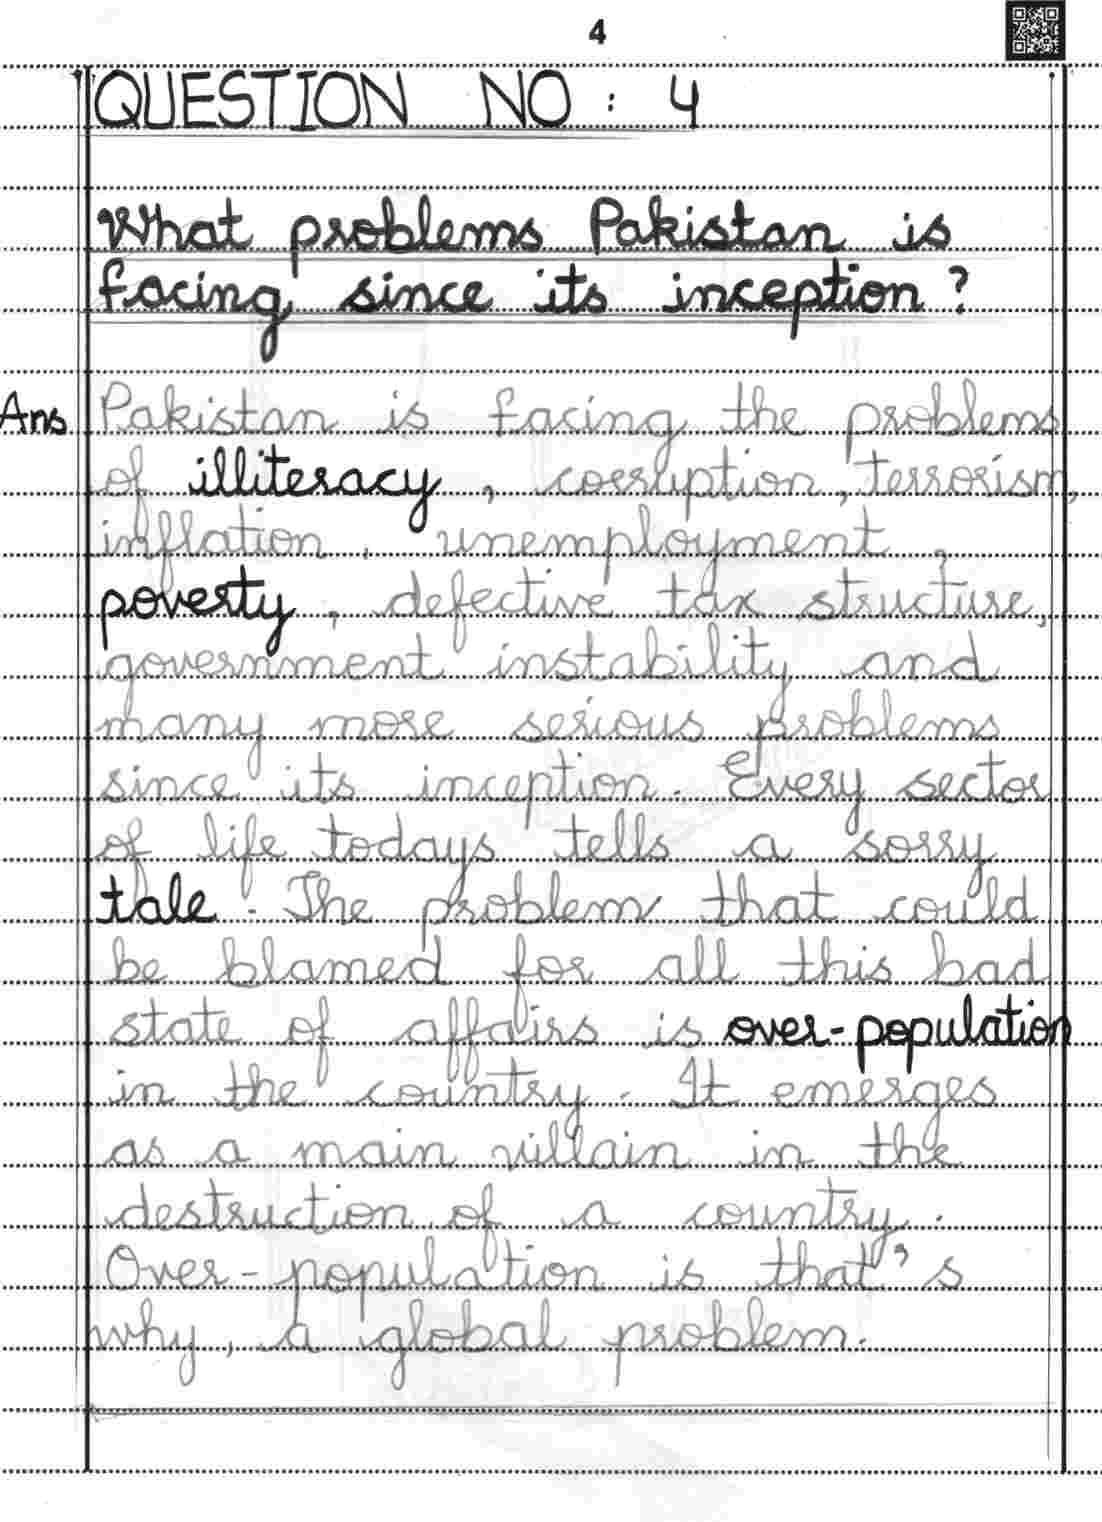 4
QUESTION NO : 4
What problems Pakistan is
facing since its inception ?
Ans Pakistan is facing the problems
of illiteracy , corruption , terrorism,
inflation , unemployment ,
poverty , defective tax structure,
government instability and
many more serious problems
since its inception . Every sector
of life todays tells a sorry
tale . The problem that could
be blamed for all this bad
state of affairs is over-population
in the country . It emerges
as a main villain in the
destruction of a country .
Over-population is that's
why, a global problem.